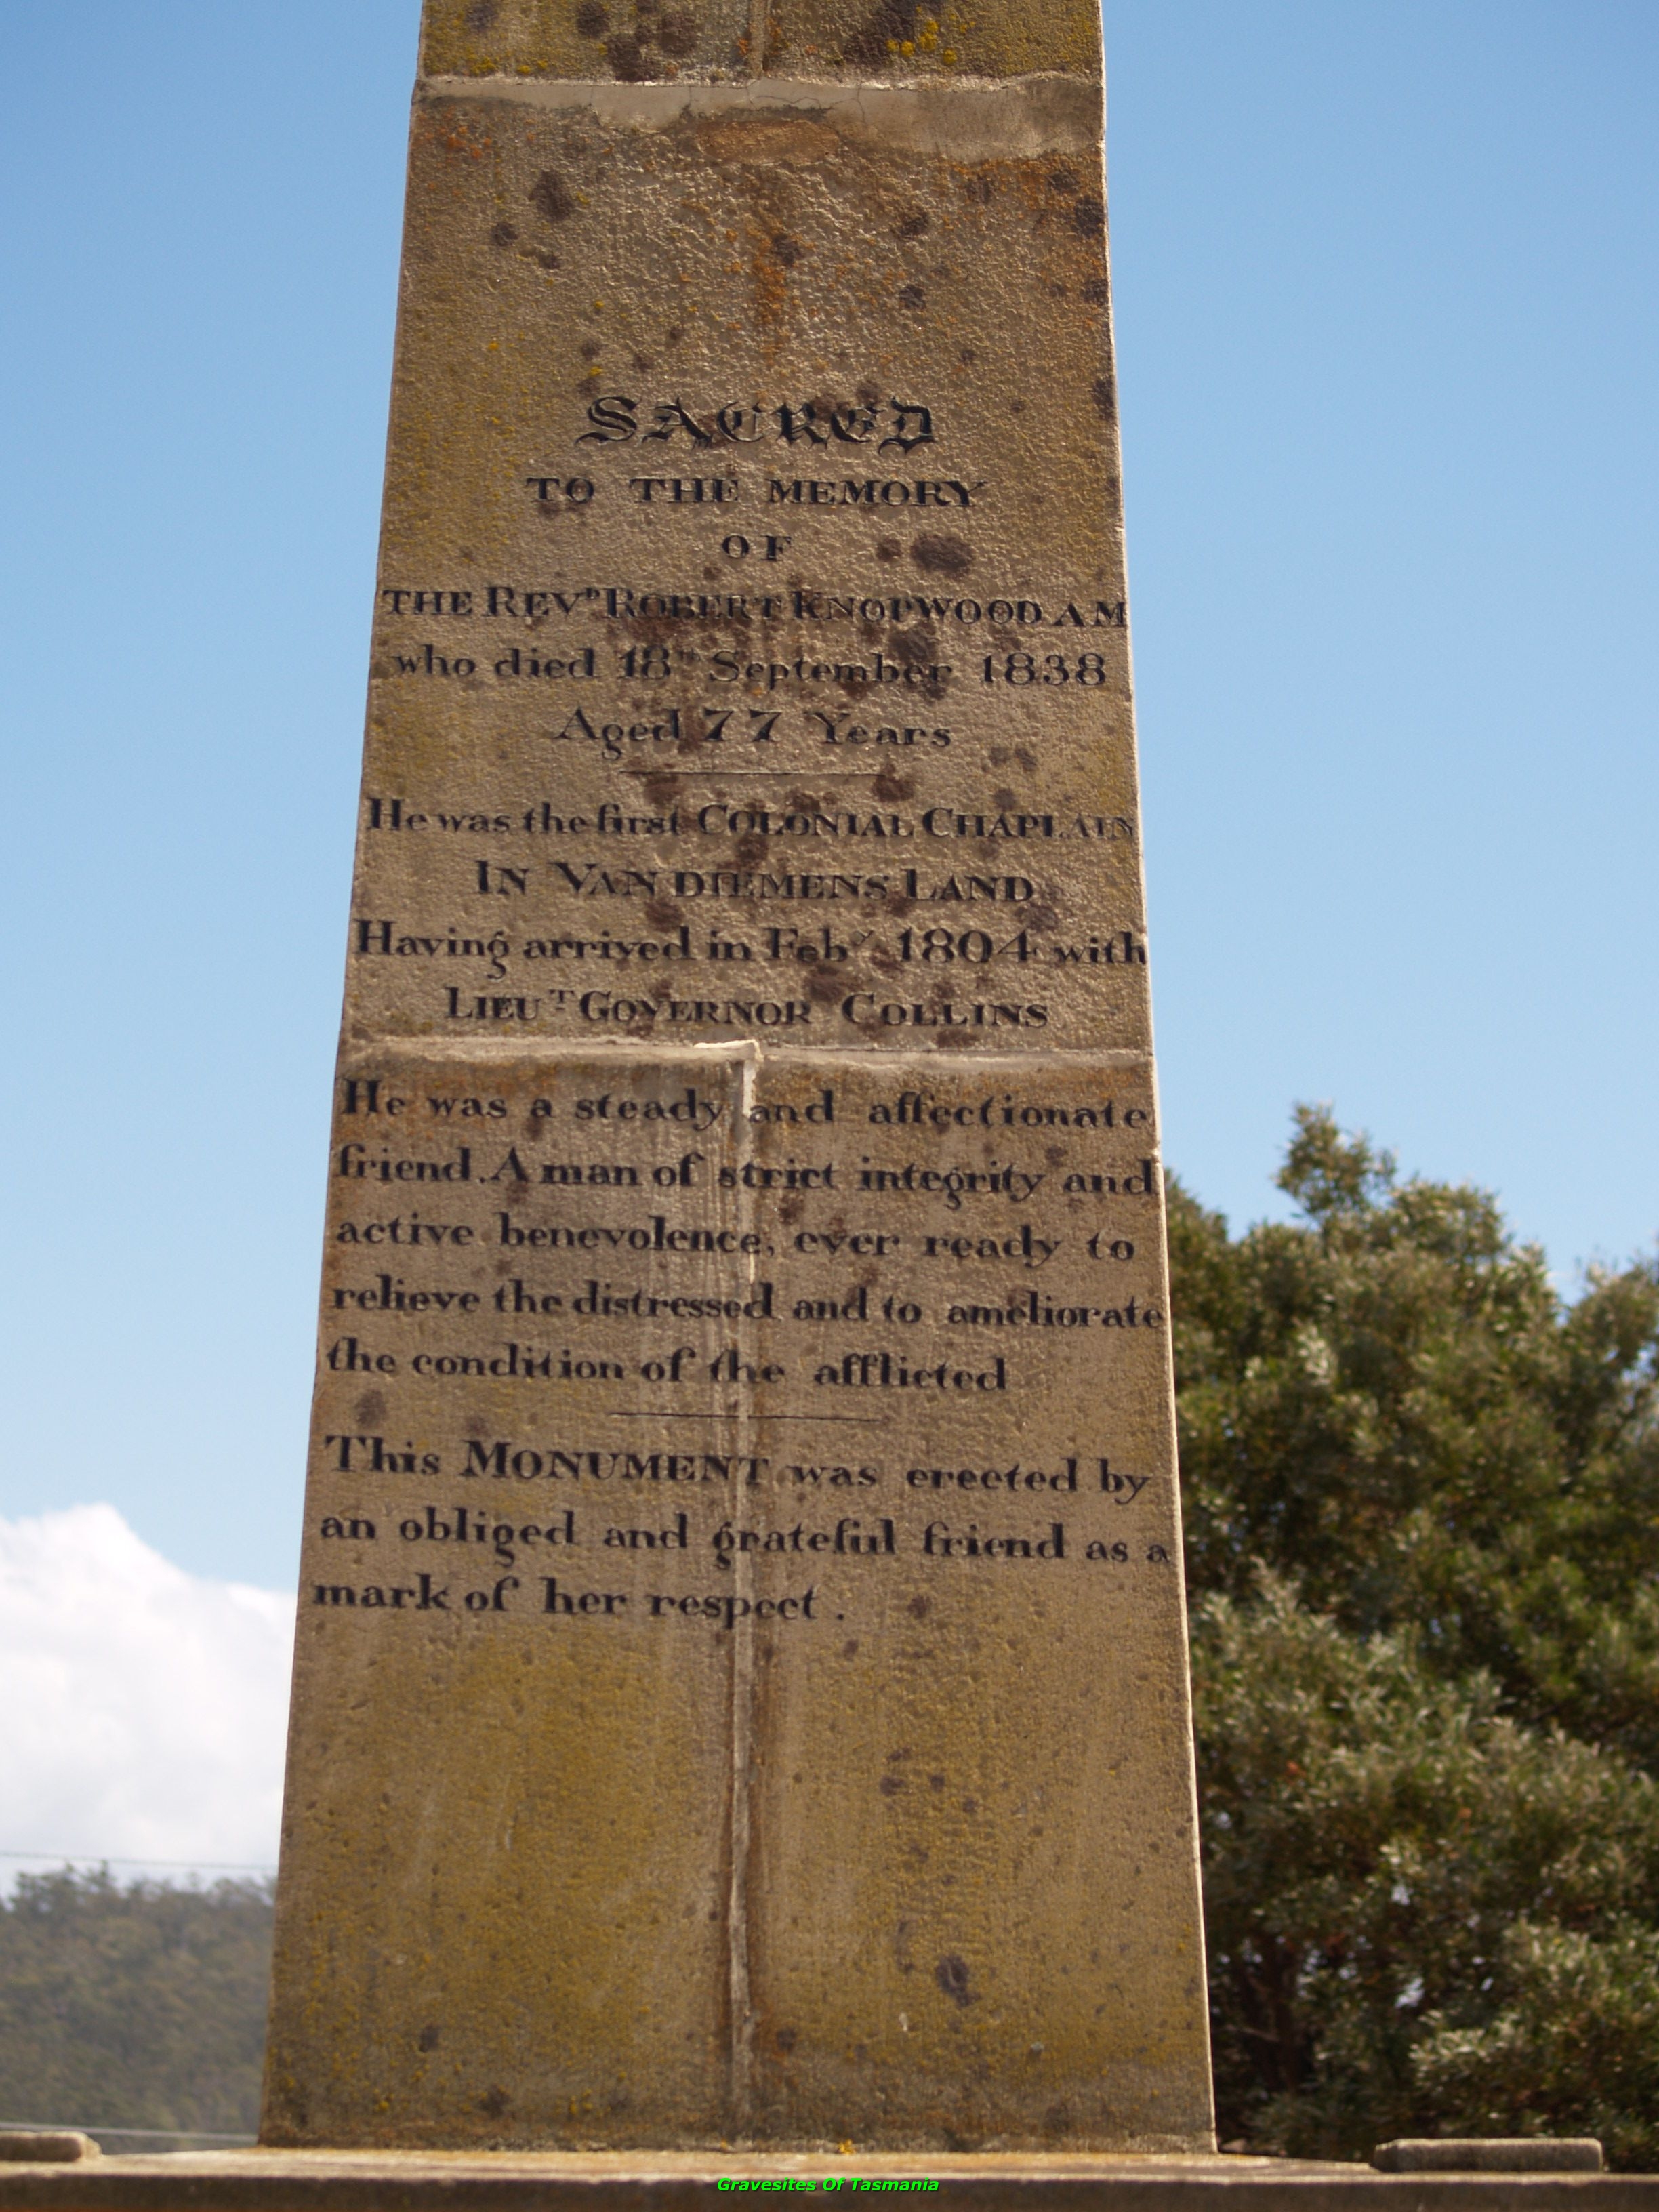 SACRED
TO THE MEMORY
OF
THE REVD ROBERT KNOPWOOD AM
who died 18th September 1838
Aged 77 Years
He was the first COLONIAL CHAPLAIN
IN VAN DIEMENS LAND
Having arrived in Feby 1804 with
LIEUT GOVERNOR COLLINS
He was a steady and affectionate
friend. A man of strict integrity and
active benevolence, ever ready to
relieve the distressed and to ameliorate
the condition of the afflicted
This MONUMENT was erected by
an obliged and grateful friend as a
mark of her respect.
Gravesites Of Tasmania